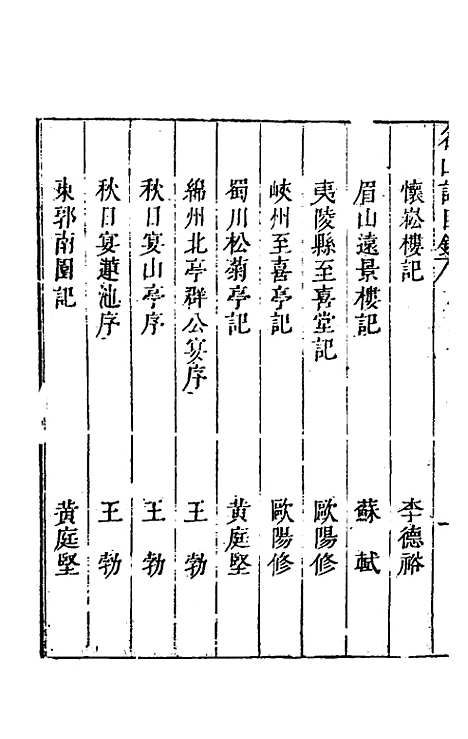 名山記目錄
懷崧樓記 李德裕
眉山遠景樓記 蘇軾
夷陵縣至喜堂記 歐陽修
峽州至喜亭記 歐陽修
蜀川松菊亭記 黃庭堅
綿州北亭群公宴序 王勃
秋日宴山亭序 王勃
秋日宴蓮池序 王勃
東郭南園記 黃庭堅